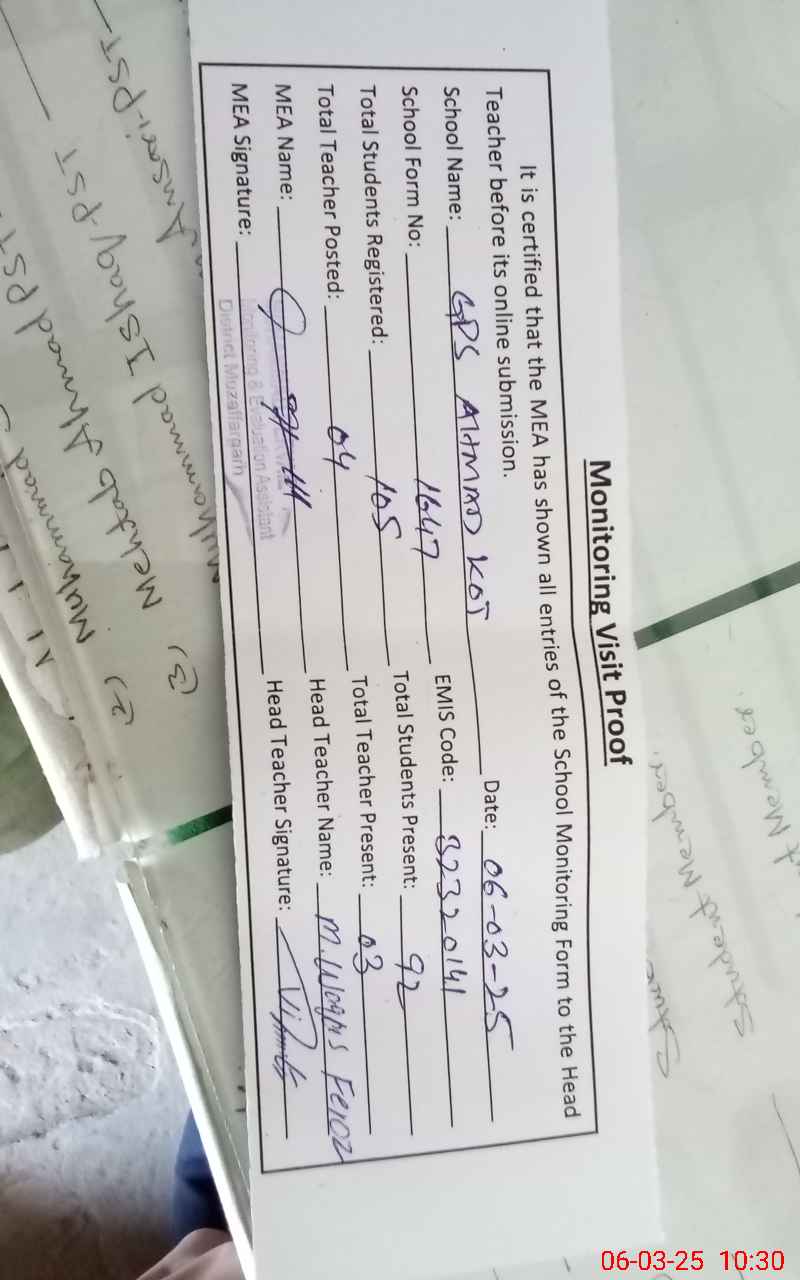 Monitoring Visit Proof
It is certified that the MEA has shown all entries of the School Monitoring Form to the Head
Teacher before its online submission.
Date: 06-03-25
School Name: GPS AHMAD KOT
School Form No: 1647 EMIS Code: 32320141
Total Students Registered: 105 Total Students Present: 92
Total Teacher Posted: 04 Total Teacher Present: 03
MEA Name: Head Teacher Name: M. Waqas Feroz
MEA Signature: Head Teacher Signature:
Monitoring & Evaluation Assistant
District Muzaffargarh
Ansari-PST
Muhammad Ishaq-PST
(3) Mehtab Ahmad PST
(2) Muhammad
Student Member.
Member.
06-03-25 10:30